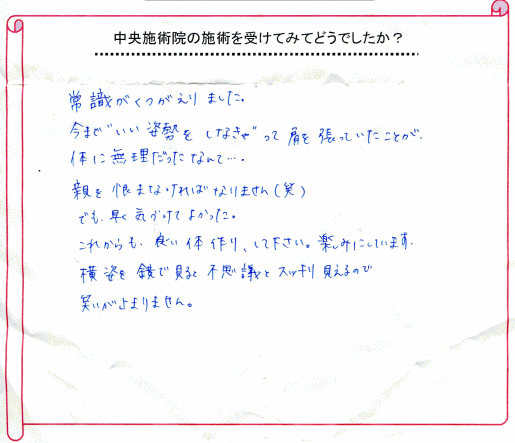 中央施術院の施術を受けてみてどうでしたか？
常識がくつがえりました。
今まで"いい姿勢をしなきゃ"って肩を張っていたことが、
体に無理だったなんて…。
親を恨まなければなりません(笑)
でも、早く気づけてよかった。
これからも、良い体作り、して下さい。楽しみにしています。
横姿を鏡で見ると不思議とスッキリ見えるので
笑いが止まりません。